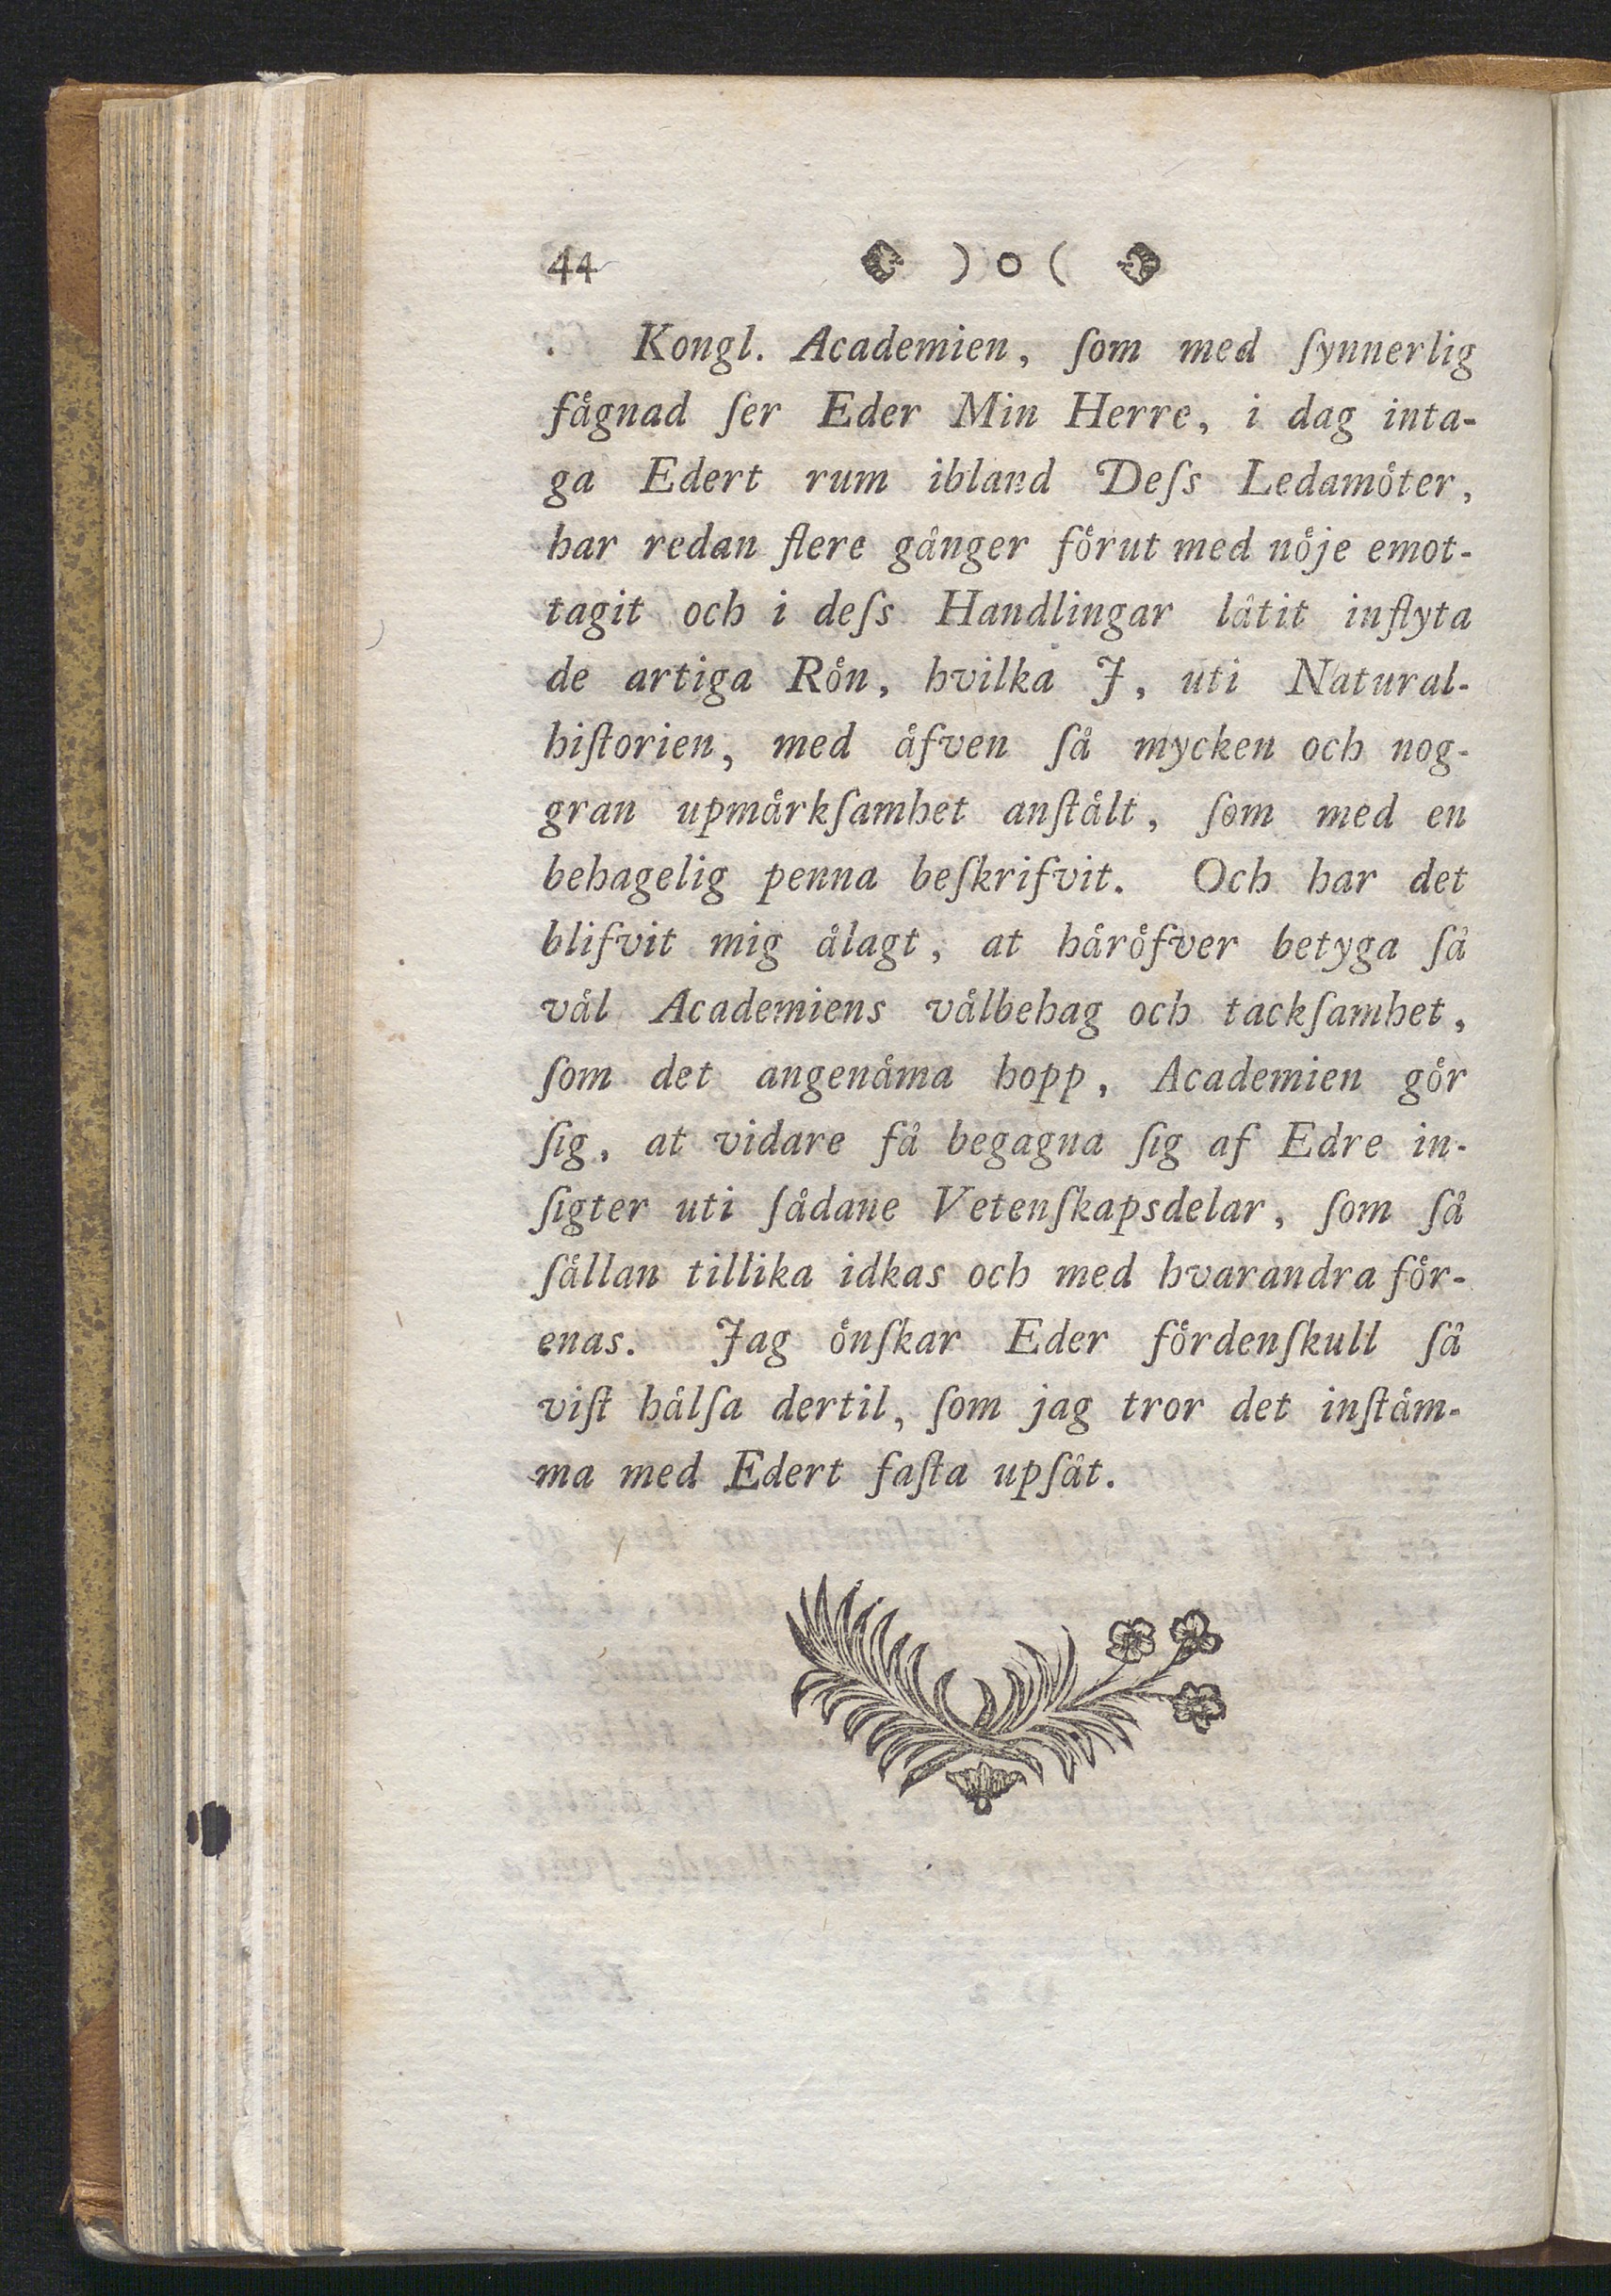 44 ) o (
Kongl. Academien, ſom med ſynnerlig
fågnad ſer Eder Min Herre, i dag inta-
ga Edert rum ibland Deſs Ledamöter,
har redan flere gånger förut med nöje emot-
tagit och i deſs Handlingar låtit inflyta
de artiga Rön, hvilka J, uti Natural-
hiſtorien, med äfven ſå mycken och nog-
gran upmärkſamhet anſtält, ſom med en
behagelig penna beſkrifvit. Och har det
blifvit mig ålagt, at häröfver betyga ſå
väl Academiens välbehag och tackſamhet,
ſom det angenäma hopp, Academien gör
ſig, at vidare få begagna ſig af Edre in-
ſigter uti ſådane Vetenſkapsdelar, ſom ſå
ſällan tillika idkas och med hvarandra för-
enas. Jag önſkar Eder fördenſkull ſå
viſt hälſa dertil, ſom jag tror det inſtäm-
ma med Edert faſta upſåt.